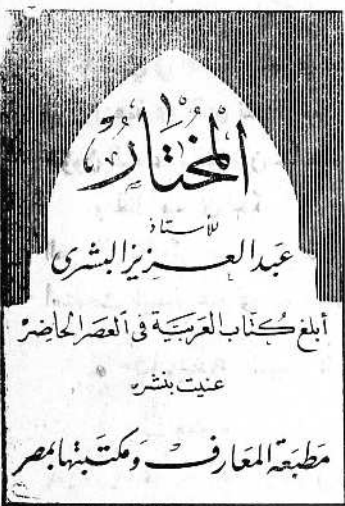 المختار
للأستاذ
عبد العزيز البشرى
أبلغ كُتّاب العربية فى العصر الحاضر
عنيت بنشره
مطبعة المعارف ومكتبتها بمصر